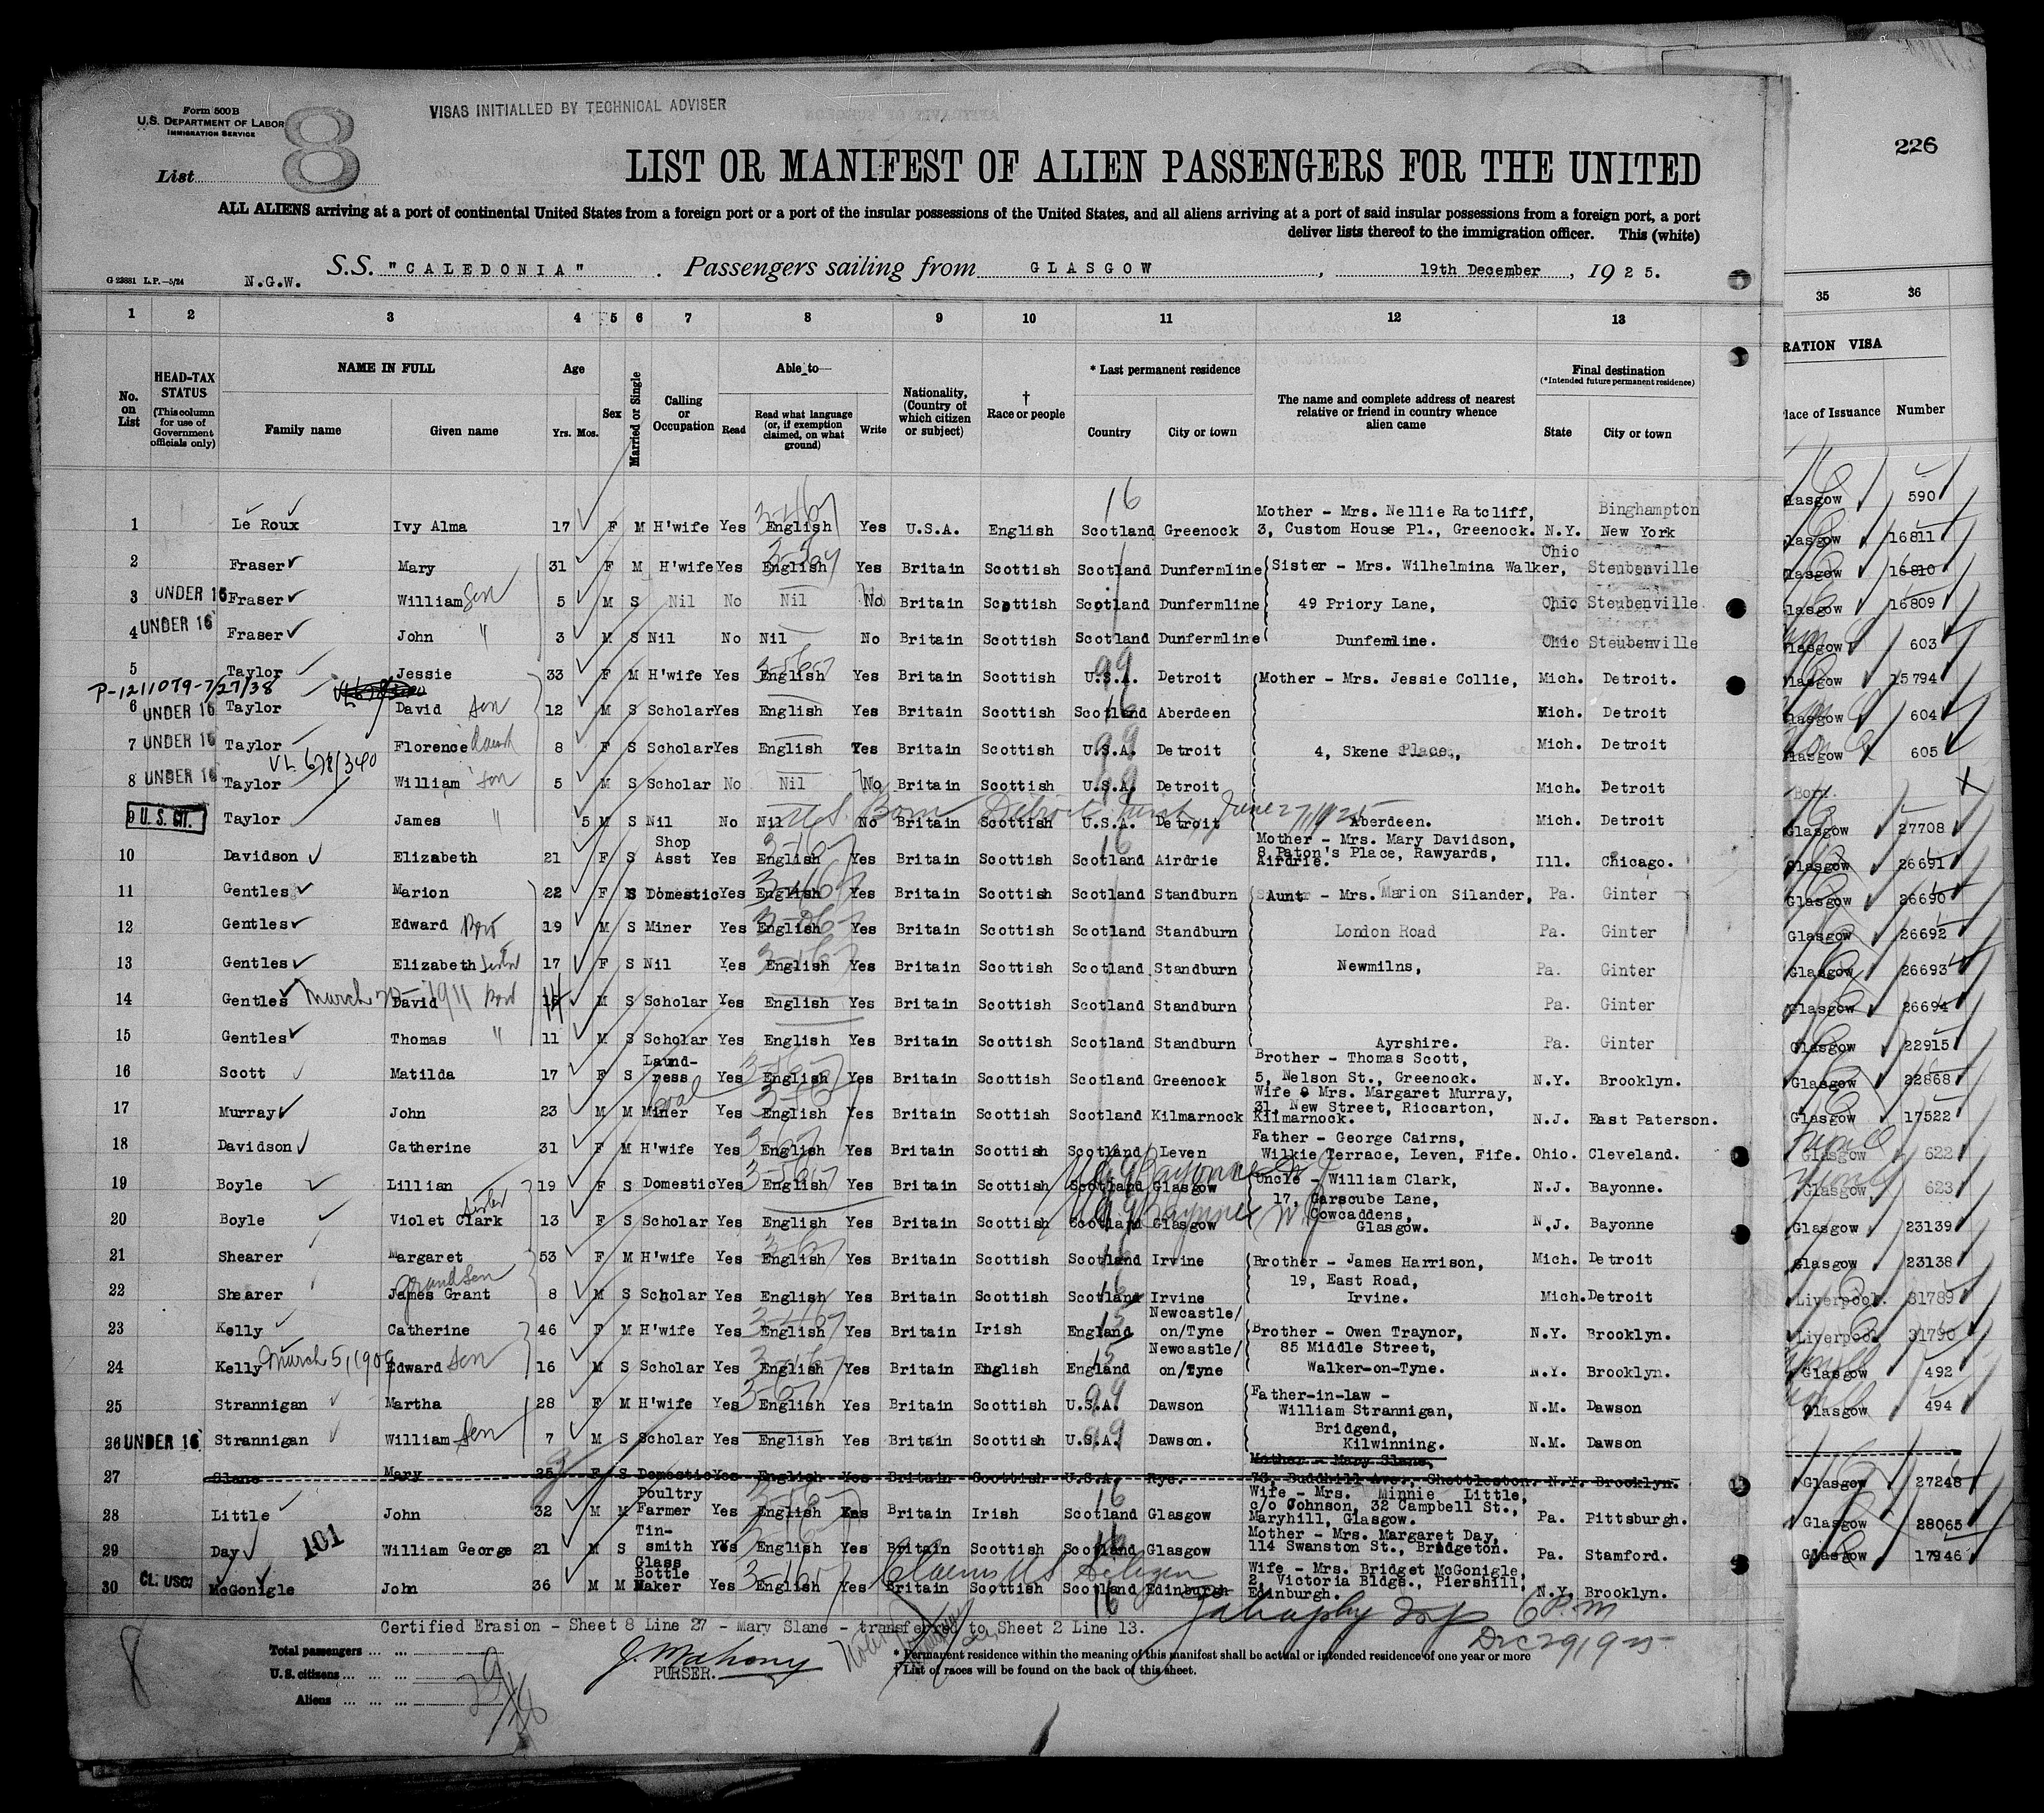 Form 500B
U.S. DEPARTMENT OF LABOR
IMMIGRATION SERVICE
8
VISAS INITIALLED BY TECHNICAL ADVISER
226
List
LIST OR MANIFEST OF ALIEN PASSENGERS FOR THE UNITED
ALL ALIENS arriving at a port of continental United States from a foreign port or a port of the insular possessions of the United States, and all aliens arriving at a port of said insular possessions from a foreign port, a port
deliver lists thereof to the immigration officer. This (white)
S.S. "CALEDONIA". Passengers sailing from GLASGOW, 19th December, 1925.
G 23881 L.P.—5/24 N.G.W.
1 2 3 4 5 6 7 8 9 10 11 12 13 35 36
No. on List HEAD-TAX STATUS (This column for use of Government officials only) NAME IN FULL Family name Given name Age Yrs. Mos. Sex Married or Single Calling or Occupation Able to— Read Read what language (or, if exemption claimed, on what ground) Write Nationality, (Country of which citizen or subject) † Race or people * Last permanent residence Country City or town The name and complete address of nearest relative or friend in country whence alien came Final destination (*Intended future permanent residence) State City or town RATION VISA lace of Issuance Number
1 Le Roux Ivy Alma 17 F M H'wife Yes English Yes U.S.A. English Scotland Greenock Mother - Mrs. Nellie Ratcliff, 3, Custom House Pl., Greenock. N.Y. Binghampton New York
2 Fraser Mary 31 F M H'wife Yes English Yes Britain Scottish Scotland Dunfermline Sister - Mrs. Wilhelmina Walker, Ohio Steubenville
3 UNDER 16 Fraser William Son 5 M S Nil No Nil No Britain Scottish Scotland Dunfermline 49 Priory Lane, Ohio Steubenville
4 UNDER 16 Fraser John " 3 M S Nil No Nil No Britain Scottish Scotland Dunfermline Dunfemline. Ohio Steubenville
5 Taylor Jessie 33 F M H'wife Yes English Yes Britain Scottish U.S.A. Detroit Mother - Mrs. Jessie Collie, Mich. Detroit.
P-1211079-7/27/38
6 UNDER 16 Taylor David Son 12 M S Scholar Yes English Yes Britain Scottish Scotland Aberdeen Mich. Detroit
7 UNDER 16 Taylor Florence 8 F S Scholar Yes English Yes Britain Scottish U.S.A. Detroit 4, Skene Place, Mich. Detroit
VL 678/340
8 UNDER 16 Taylor William Son 5 M S Scholar No Nil No Britain Scottish U.S.A. Detroit Mich. Detroit
9 U.S. CIT. Taylor James " 5 M S Nil No Nil No Britain Scottish U.S.A. Detroit Aberdeen. Mich. Detroit
U.S. Born Detroit Mich June 27, 1925
10 Davidson Elizabeth 21 F S Shop Asst Yes English Yes Britain Scottish Scotland Airdrie Mother - Mrs. Mary Davidson, 8 Paton's Place, Rawyards, Airdrie. Ill. Chicago.
11 Gentles Marion 22 F S Domestic Yes English Yes Britain Scottish Scotland Standburn Aunt - Mrs. Marion Silander, Pa. Ginter
12 Gentles Edward 19 M S Miner Yes English Yes Britain Scottish Scotland Standburn London Road Pa. Ginter
13 Gentles Elizabeth Sister 17 F S Nil Yes English Yes Britain Scottish Scotland Standburn Newmilns, Pa. Ginter
14 Gentles David 14 M S Scholar Yes English Yes Britain Scottish Scotland Standburn Pa. Ginter
15 Gentles Thomas " 11 M S Scholar Yes English Yes Britain Scottish Scotland Standburn Ayrshire. Pa. Ginter
16 Scott Matilda 17 F S Laundress Yes English Yes Britain Scottish Scotland Greenock Brother - Thomas Scott, 5, Nelson St., Greenock. N.Y. Brooklyn.
17 Murray John 23 M M Coal Miner Yes English Yes Britain Scottish Scotland Kilmarnock Wife - Mrs. Margaret Murray, 31, New Street, Riccarton, Kilmarnock. N.J. East Paterson.
18 Davidson Catherine 31 F M H'wife Yes English Yes Britain Scottish Scotland Leven Father - George Cairns, Wilkie Terrace, Leven, Fife. Ohio. Cleveland.
19 Boyle Lillian 19 F S Domestic Yes English Yes Britain Scottish Scotland Glasgow Bayonne Uncle - William Clark, N.J. Bayonne.
20 Boyle Violet Clark Sister 13 F S Scholar Yes English Yes Britain Scottish Scotland Glasgow Bayonne 17, Garscube Lane, Cowcaddens, Glasgow. N.J. Bayonne
21 Shearer Margaret 53 F M H'wife Yes English Yes Britain Scottish Scotland Irvine Brother - James Harrison, Mich. Detroit
22 Shearer James Grant Grandson 8 M S Scholar Yes English Yes Britain Scottish Scotland Irvine 19, East Road, Irvine. Mich. Detroit
23 Kelly Catherine 46 F M H'wife Yes English Yes Britain Irish England Newcastle/on/Tyne Brother - Owen Traynor, N.Y. Brooklyn.
24 Kelly Edward Son 16 M S Scholar Yes English Yes Britain English England Newcastle/on/Tyne 85 Middle Street, Walker-on-Tyne. N.Y. Brooklyn.
25 Strannigan Martha 28 F M H'wife Yes English Yes Britain Scottish U.S.A. Dawson Father-in-law - William Strannigan, N.M. Dawson
26 UNDER 16 Strannigan William Son 7 M S Scholar Yes English Yes Britain Scottish U.S.A. Dawson. Bridgend, Kilwinning. N.M. Dawson
27 Slane Mary 25 F S Domestic Yes English Yes Britain Scottish U.S.A. Rye. Mother - Mary Slane, 73, Buddhill Ave., Shettleston. N.Y. Brooklyn.
28 Little John 32 M M Poultry Farmer Yes English Yes Britain Irish Scotland Glasgow Wife - Mrs. Minnie Little, c/o Johnson, 32 Campbell St., Maryhill, Glasgow. Pa. Pittsburgh.
29 Day 101 William George 21 M S Tin-smith Yes English Yes Britain Scottish Scotland Glasgow Mother - Mrs. Margaret Day, 114 Swanston St., Bridgeton. Pa. Stamford.
30 CL. USC. McGonigle John 36 M M Glass Bottle Maker Yes English Yes Britain Scottish Scotland Edinburgh Wife - Mrs. Bridget McGonigle, 2, Victoria Bldgs., Piershill, Edinburgh. N.Y. Brooklyn.
Claims US Citizen
Glasgow 590
Glasgow 16811
Glasgow 16810
Glasgow 16809
Glasgow 603
Glasgow 15794
Glasgow 604
Glasgow 605
Born.
Glasgow 27708
Glasgow 26691
Glasgow 26690
Glasgow 26692
Glasgow 26693
Glasgow 26694
Glasgow 22915
Glasgow 22868
Glasgow 17522
Glasgow 622
Glasgow 623
Glasgow 23139
Glasgow 23138
Liverpool. 31789
Liverpool 31790
Glasgow 492
Glasgow 494
Glasgow 27248
Glasgow 28065
Glasgow 17946
Certified Erasion - Sheet 8 Line 27 - Mary Slane - transferred to Sheet 2 Line 13.
6 P.M
Dec 29, 1925
Total passengers
U.S. citizens
Aliens
J. Mahony
PURSER.
* Permanent residence within the meaning of this manifest shall be actual or intended residence of one year or more
† List of races will be found on the back of this sheet.
8